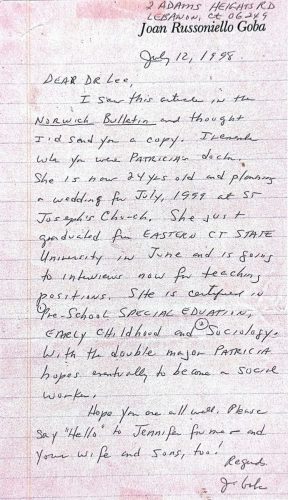 2 ADAMS HEIGHTS RD
LEBANON, CT 06249
Joan Russoniello Goba
July 12, 1998
DEAR DR Lee,
I saw this article in the
NORWICH BULLETIN and thought
I'd send you a copy. I remember
when you were PATRICIA's doctor.
She is now 24 yrs old and planning
a wedding for July, 1999 at ST
Joseph's Church. She just
graduated from EASTERN CT STATE
University in June and is going
to interviews now for teaching
positions. SHe is certified in
Pre-School SPECIAL EDUATION,
EARLY CHildhood and Sociology.
With the double major PATRICIA
hopes eventually to become a social
worker.
Hope you are all well. Please
say "Hello" to Jennifer for me and
your wife and sons, too.
Regards
J Goba